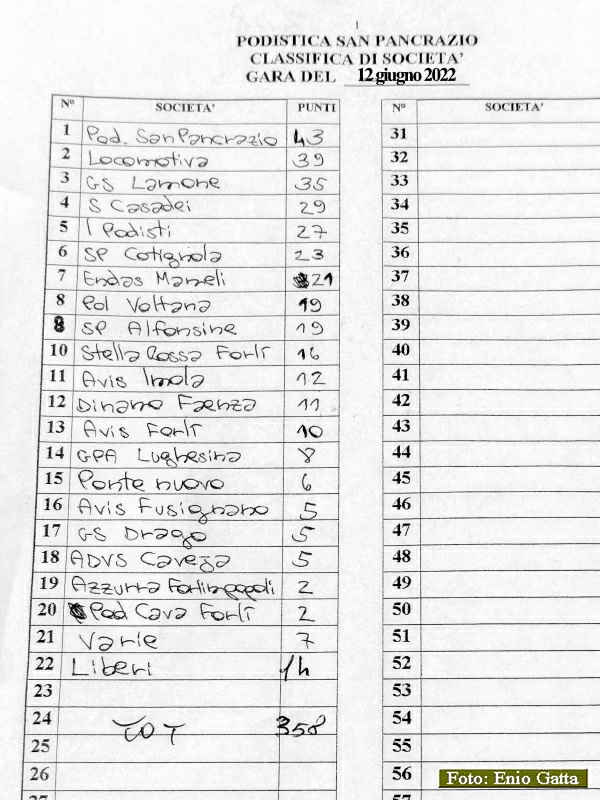 1
PODISTICA SAN PANCRAZIO
CLASSIFICA DI SOCIETA'
GARA DEL 12 giugno 2022
N° SOCIETA' PUNTI N° SOCIETA'
1 Pod. San Pancrazio 43 31
2 Locomotiva 39 32
3 GS Lamone 35 33
4 S Casadei 29 34
5 I Podisti 27 35
6 SP Cotignola 23 36
7 Endas Mameli 21 37
8 Pol Voltana 19 38
8 SP Alfonsine 19 39
10 Stella Rossa Forlì 16 40
11 Avis Imola 12 41
12 Dinamo Faenza 11 42
13 Avis Forlì 10 43
14 GPA Lughesina 8 44
15 Ponte nuovo 6 45
16 Avis Fusignano 5 46
17 GS Drago 5 47
18 ADVS Caveja 5 48
19 Azzurra Forlimpopoli 2 49
20 Pod Cava Forlì 2 50
21 Varie 7 51
22 Liberi 14 52
23 53
24 TOT 358 54
25 55
26 56
57
Foto: Enio Gatta